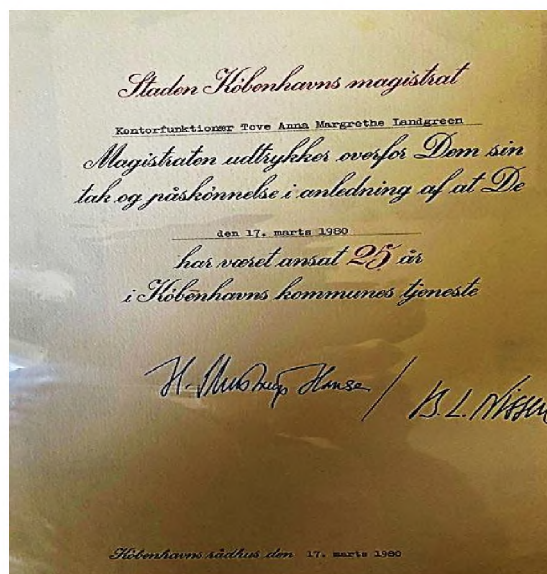 Staden Københavns magistrat
Kontorfunktionær Tove Anna Margrethe Landgreen
Magistraten udtrykker overfor Dem sin
tak og påskønnelse i anledning af at De
den 17. marts 1980
har været ansat 25 år
i Københavns kommunes tjeneste
H. Hansen / B. L. Nissen
Københavns rådhus den 17. marts 1980